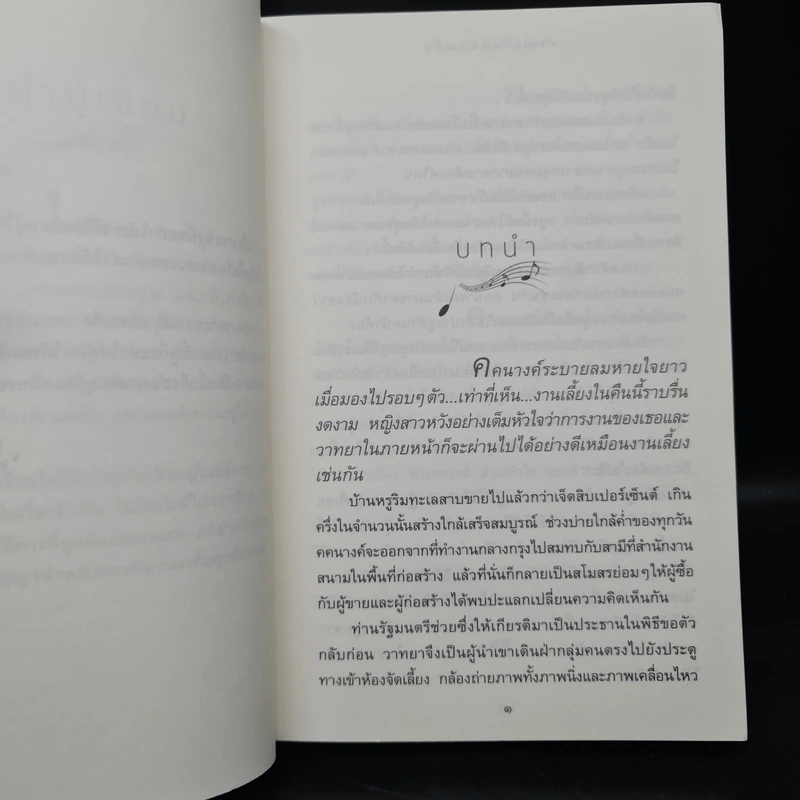 บทนำ
คคนางค์ระบายลมหายใจยาว
เมื่อมองไปรอบๆตัว...เท่าที่เห็น...งานเลี้ยงในคืนนี้ราบรื่น
งดงาม หญิงสาวหวังอย่างเต็มหัวใจว่าการงานของเธอและ
วาทยาในภายหน้าก็จะผ่านไปได้อย่างดีเหมือนงานเลี้ยง
เช่นกัน
บ้านหรูริมทะเลสาบขายไปแล้วกว่าเจ็ดสิบเปอร์เซ็นต์ เกิน
ครึ่งในจำนวนนั้นสร้างใกล้เสร็จสมบูรณ์ ช่วงบ่ายใกล้ค่ำของทุกวัน
คคนางค์จะออกจากที่ทำงานกลางกรุงไปสมทบกับสามีที่สำนักงาน
สนามในพื้นที่ก่อสร้าง แล้วที่นั่นก็กลายเป็นสโมสรย่อมๆให้ผู้ซื้อ
กับผู้ขายและผู้ก่อสร้างได้พบปะแลกเปลี่ยนความคิดเห็นกัน
ท่านรัฐมนตรีช่วยซึ่งให้เกียรติมาเป็นประธานในพิธีขอตัว
กลับก่อน วาทยาจึงเป็นผู้นำเขาเดินฝ่ากลุ่มคนตรงไปยังประตู
ทางเข้าห้องจัดเลี้ยง กล้องถ่ายภาพทั้งภาพนิ่งและภาพเคลื่อนไหว
๑